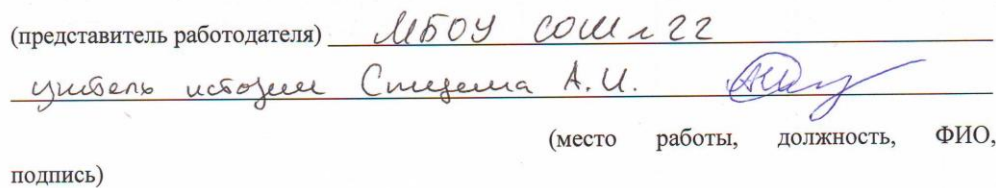 (представитель работодателя) МБОУ СОШ № 22
учитель истории А.И.
(место работы, должность, ФИО,
подпись)